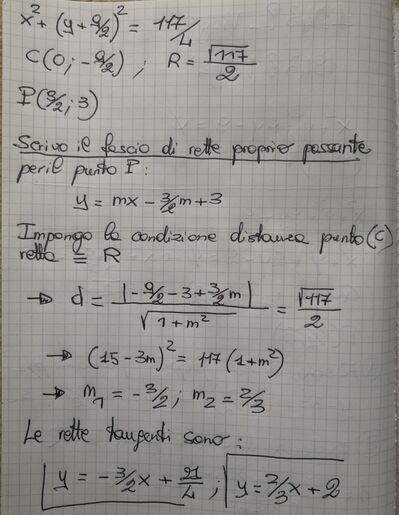 x² + (y + 9/2)² = 117/4
C(0; -9/2) ; R = √117/2
P(3/2; 3)
Scrivo il fascio di rette proprio passante
per il punto P:
y = mx - 3/2 m + 3
Impongo la condizione distanza punto (C)
retta ≡ R
→ d = |-9/2 - 3 + 3/2 m| / √(1 + m²) = √117/2
→ (15 - 3m)² = 117(1 + m²)
→ m₁ = -3/2 ; m₂ = 2/3
Le rette tangenti sono:
y = -3/2 x + 21/4 ; y = 2/3 x + 2